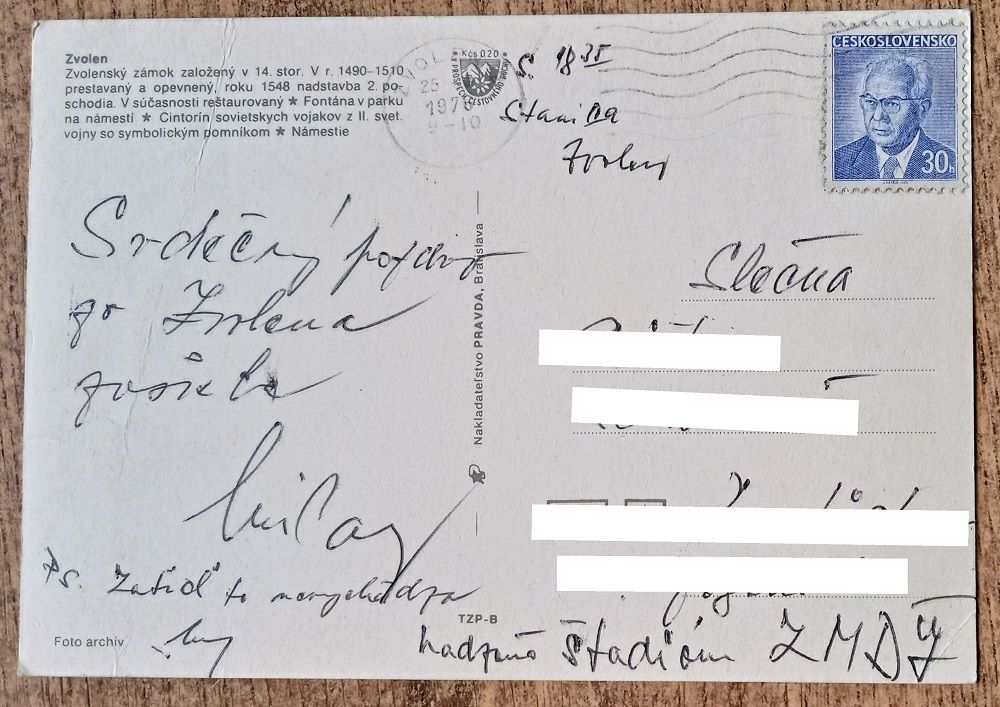 Zvolen
Zvolenský zámok založený v 14. stor. V r. 1490–1510
prestavaný a opevnený, roku 1548 nadstavba 2. po-
schodia. V súčasnosti reštaurovaný ★ Fontána v parku
na námestí ★ Cintorín sovietskych vojakov z II. svet.
vojny so symbolickým pomníkom ★ Námestie
Kčs 0.20
25
9-10
S. 18 35
Stanica
Zvolen
ČESKOSLOVENSKO
30h
Srdečný pozdrav
zo Zvolena
zasiela
Milan
Ps. Zatiaľ to nevychádza
Nakladateľstvo PRAVDA, Bratislava
Slečna
TZP-B
Foto archív
štadión ZMDŽ